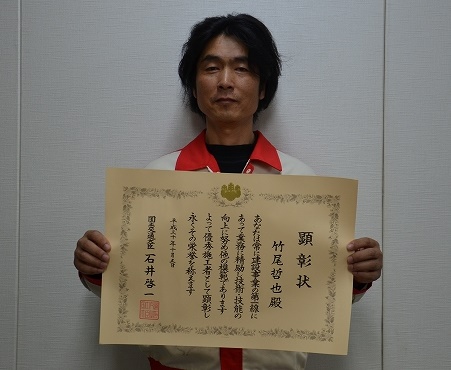 顕彰状
竹尾哲也殿
あなたは常に建設事業の第一線に
あって業務に精励し技術・技能の
向上に努め他の模範であります
よって優秀施工者として顕彰し
永くその栄誉を称えます
平成三十年十月九日
国土交通大臣 石井啓一